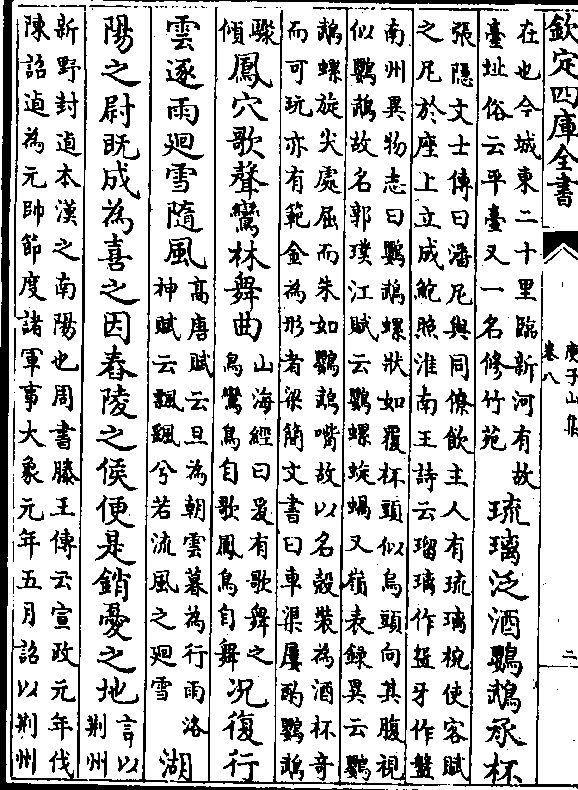 欽定四庫全書
庾子山集
卷八
二
在也今城東二十里臨新河有故
臺址俗云平臺又一名修竹苑
琉璃泛酒鸚鵡承杯
張隱文士傳曰潘尼與同僚飲主人有琉璃椀使客賦
之尼於座上立成鮑照淮南王詩云瑠璃作盌牙作盤
南州異物志曰鸚鵡螺狀如覆杯頭似鳥頭向其腹視
似鸚鵡故名郭璞江賦云鸚螺蜁蝸又嶺表録異云鸚
鵡螺旋尖處屈而朱如鸚鵡嘴故以名殻裝為酒杯奇
而可玩亦有範金為形者梁簡文書曰車渠屢酌鸚鵡
驟
傾
鳳穴歌聲鸞林舞曲
山海經曰爰有歌舞之
鳥鸞鳥自歌鳳鳥自舞
況復行
雲逐雨廻雪隨風
高唐賦云旦為朝雲暮為行雨洛
神賦云飄颻兮若流風之廻雪
湖
陽之尉既成為喜之因舂陵之侯便是銷憂之地
言以
荆州
新野封逌本漢之南陽也周書滕王傳云宣政元年伐
陳詔逌為元帥節度諸軍事大象元年五月詔以荆州